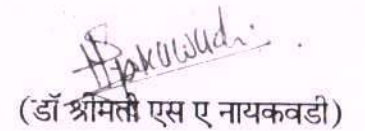 (डॉ श्रीमती एस ए नायकवडी)